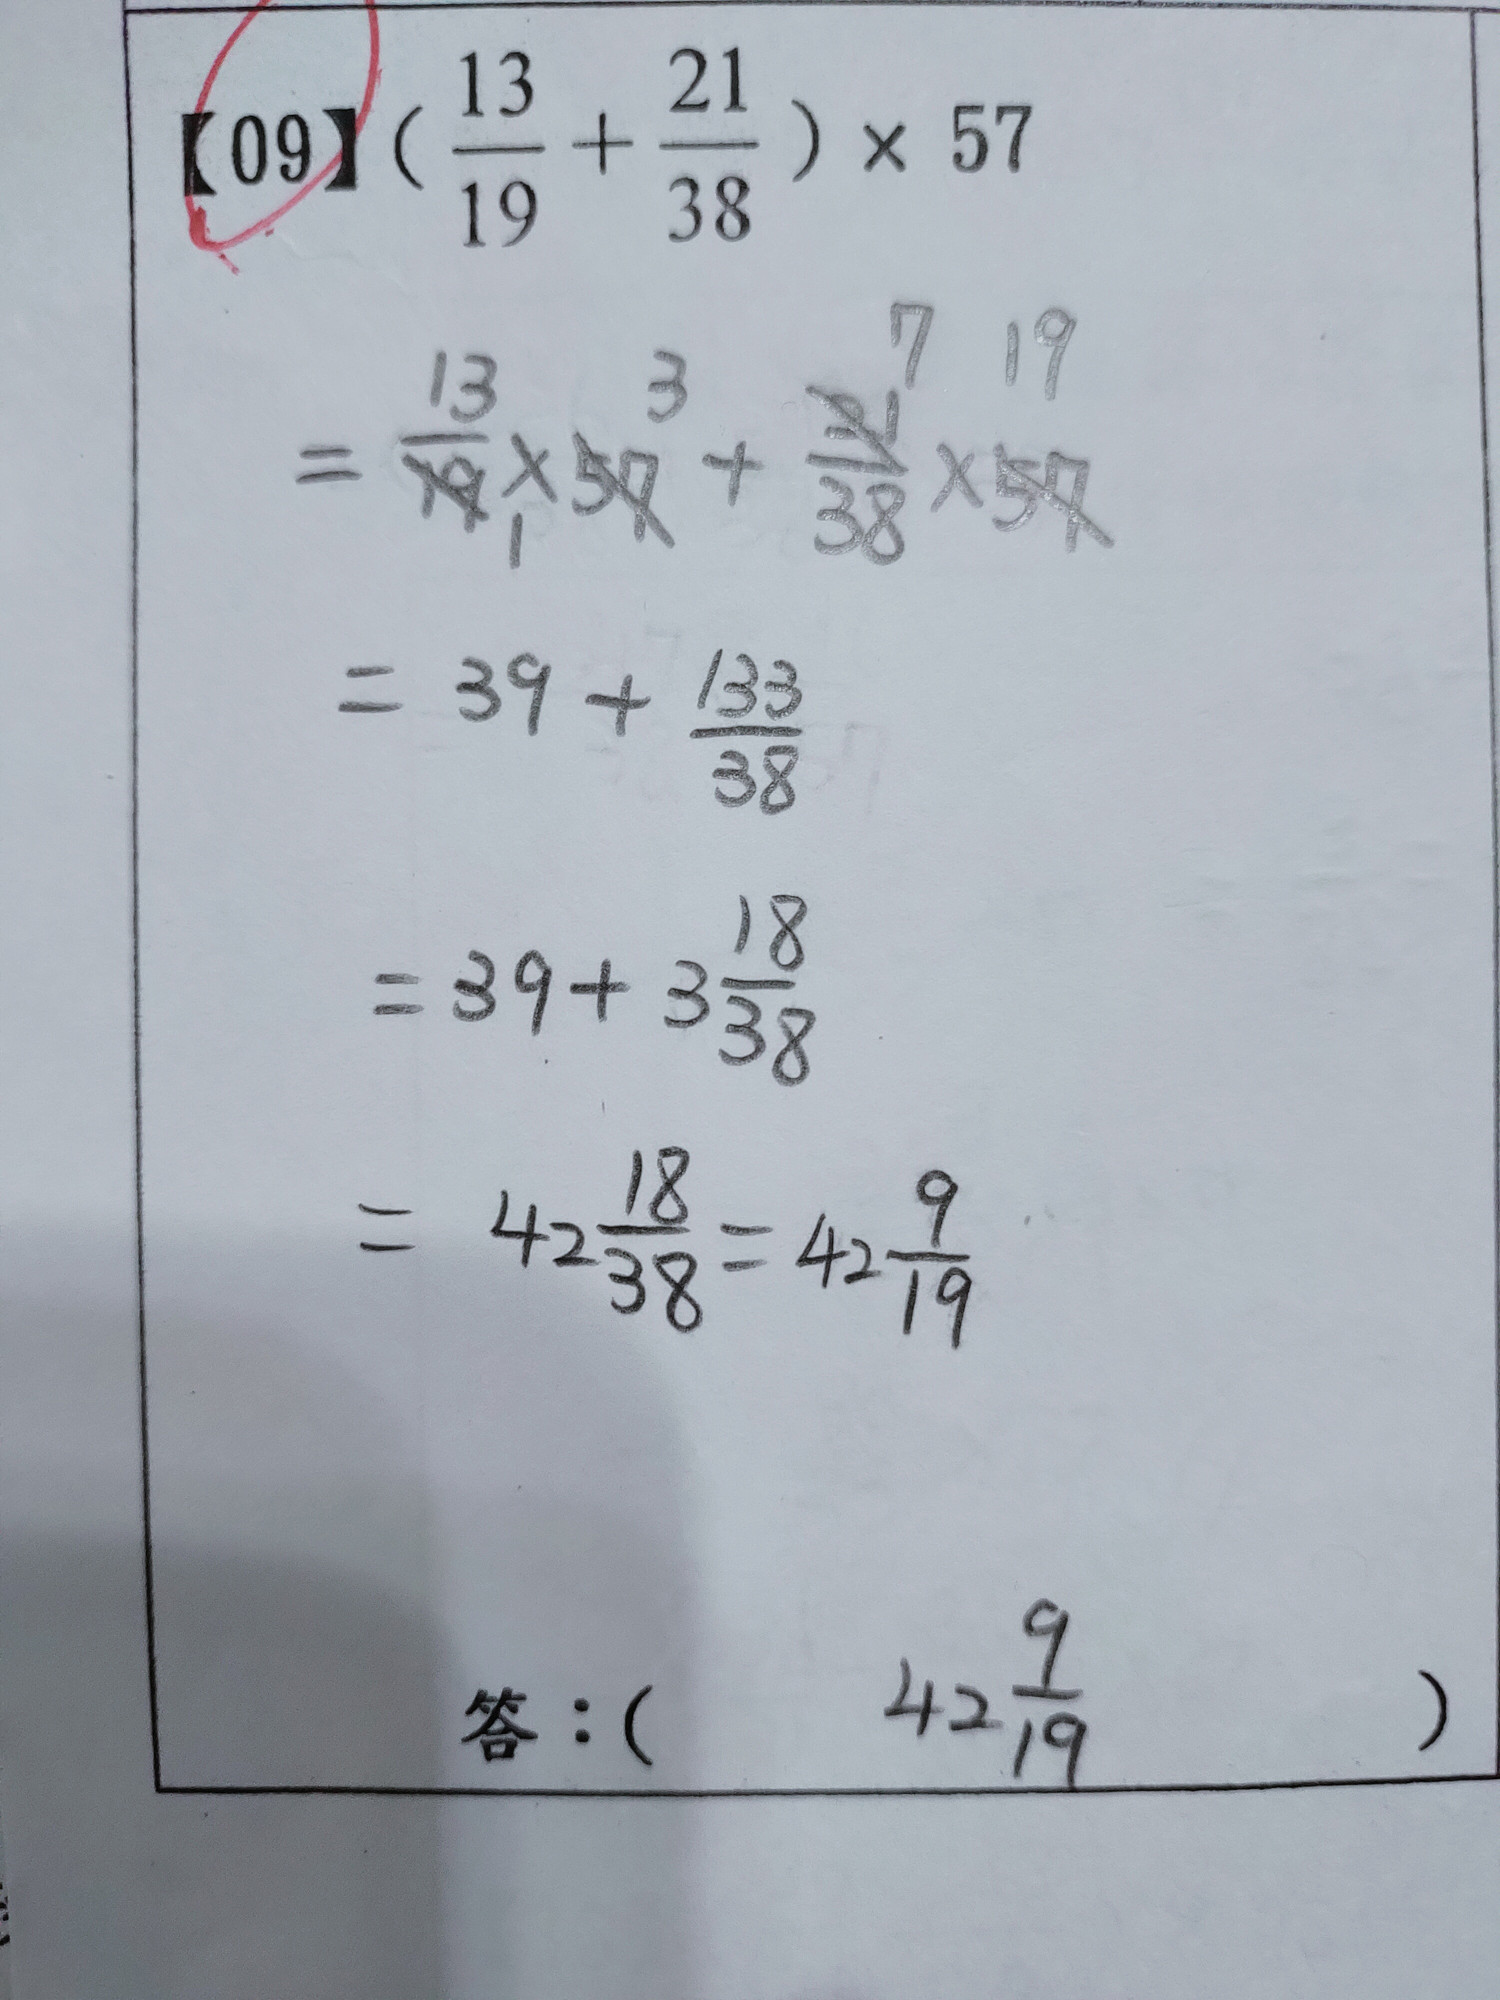 【09】( 13/19 + 21/38 ) × 57
= 13/19 × 57 + 21/38 × 57
1 3 7 19
= 39 + 133/38
= 39 + 3 18/38
= 42 18/38 = 42 9/19
答：( 42 9/19 )